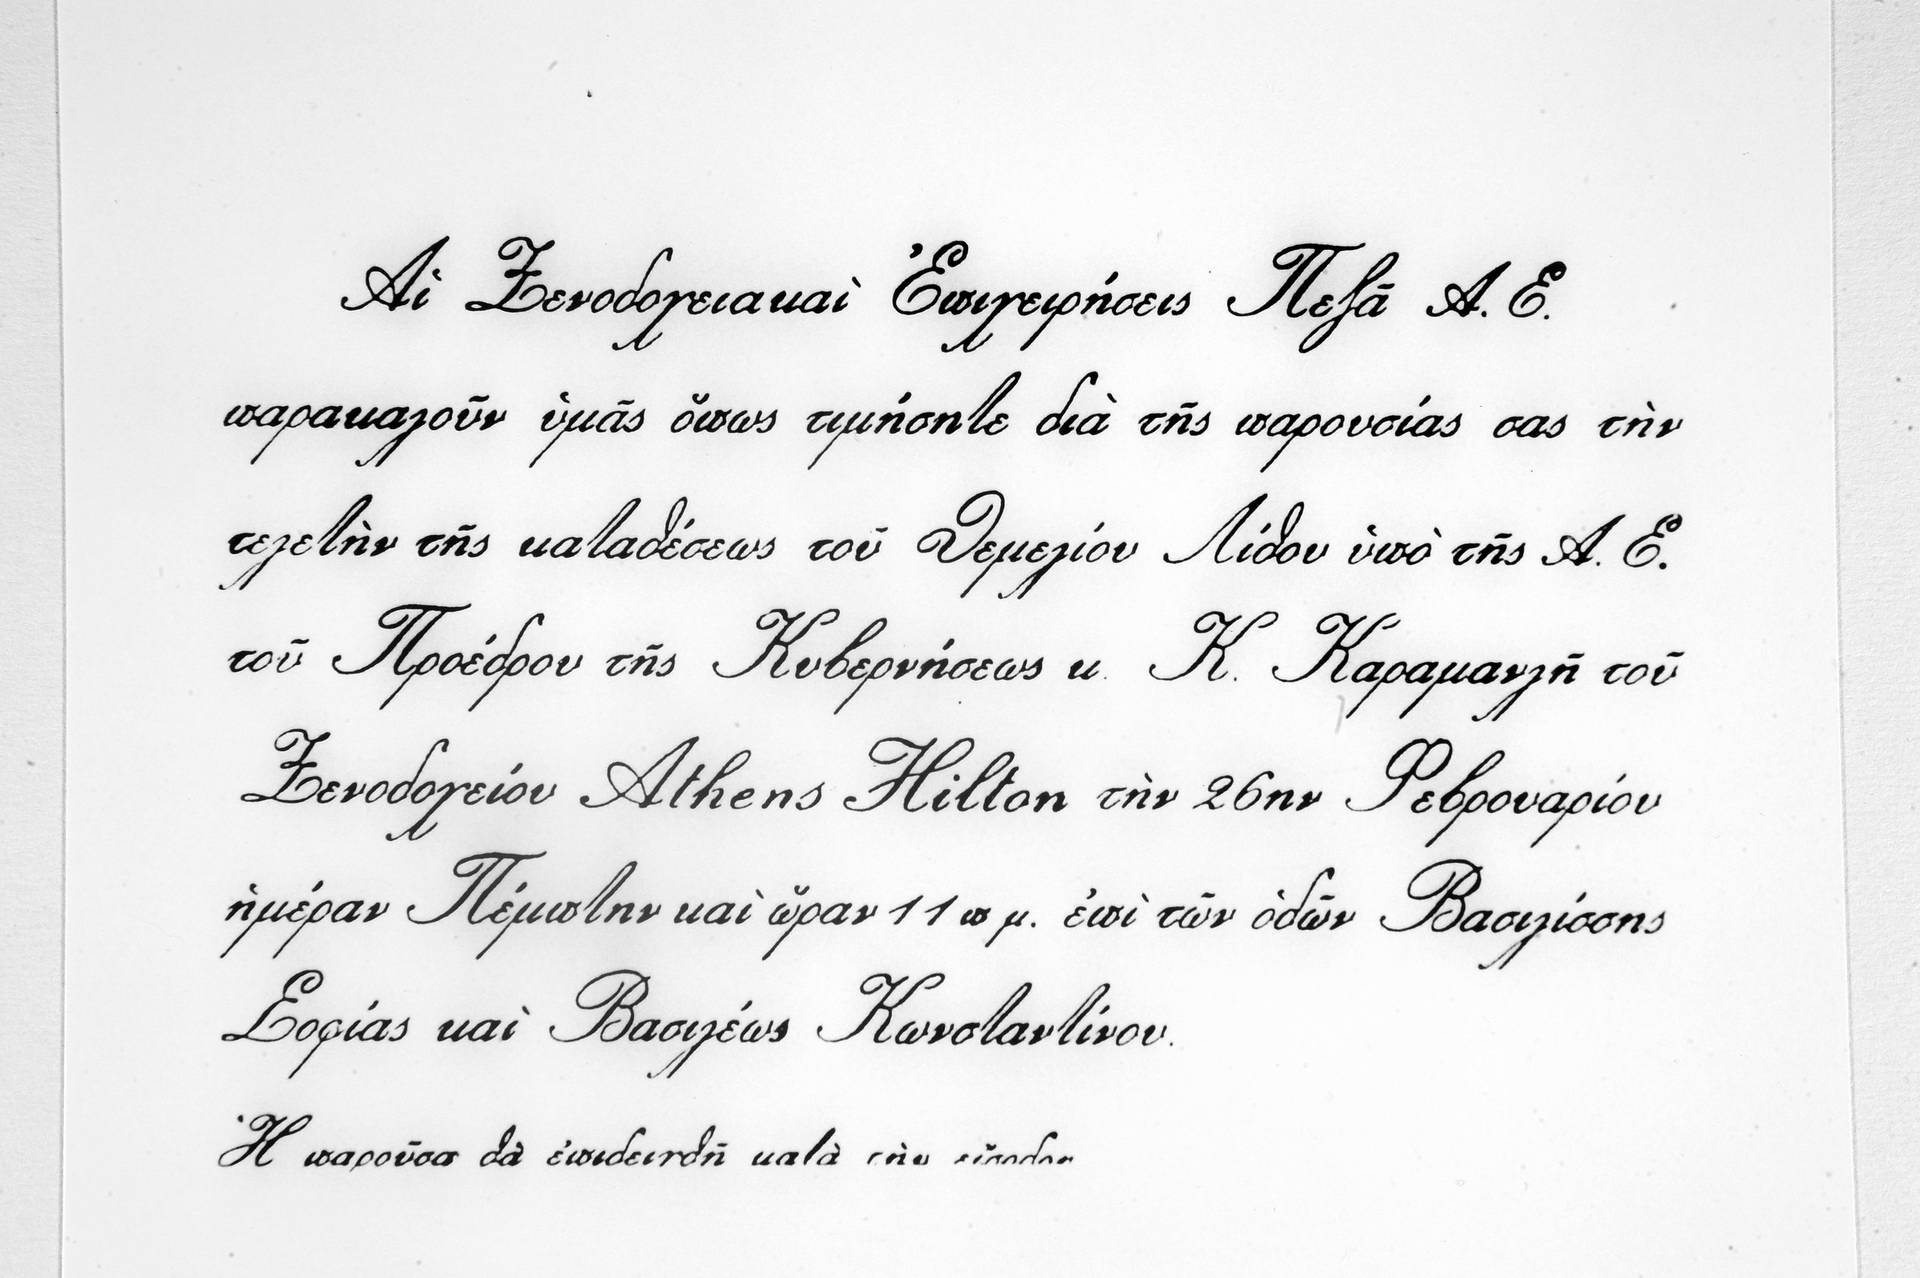 Αἱ Ξενοδοχειακαὶ Ἐπιχειρήσεις Πεζᾶ Α. Ε.
παρακαλοῦν ὑμᾶς ὅπως τιμήσητε διὰ τῆς παρουσίας σας τὴν
τελετὴν τῆς καταθέσεως τοῦ Θεμελίου Λίθου ὑπὸ τῆς Α. Ε.
τοῦ Προέδρου τῆς Κυβερνήσεως κ. Κ. Καραμανλῆ τοῦ
Ξενοδοχείου Athens Hilton τὴν 26ην Φεβρουαρίου
ἡμέραν Πέμπτην καὶ ὥραν 11 π μ. ἐπὶ τῶν ὁδῶν Βασιλίσσης
Σοφίας καὶ Βασιλέως Κωνσταντίνου.
Ἡ παροῦσα θὰ ἐπιδειχθῆ κατὰ τὴν εἴσοδον